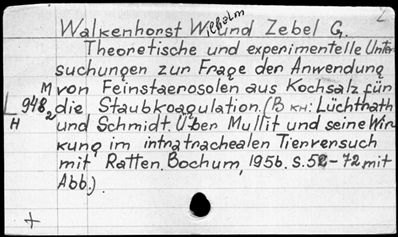 2
Walkenhorst Wilhelm und Zebel G.
Theoretische und experimentelle Unter
suchungen zur Frage der Anwendung
M von Feinstaerosolen aus Kochsalz für
L 948₂ die Staubkoagulation. (В кн: Lüchtrath
H und Schmidt. Über Mullit und seine Wir
kung im intratrachealen Tierversuch
mit Ratten. Bochum, 1956. S. 52-72 mit
Abb.)
+